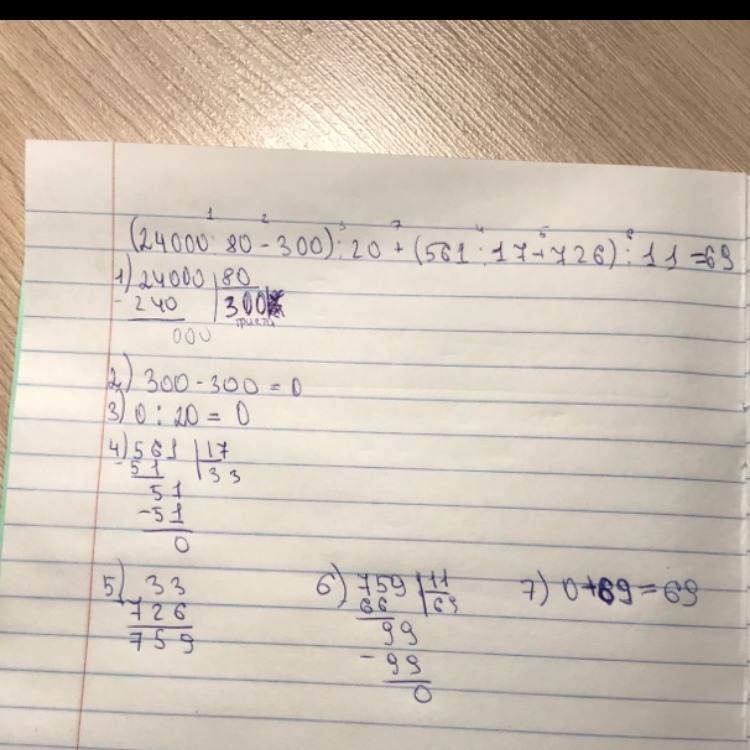 1 2 3 7 4 5 6
(24000 : 80 - 300) : 20 + (561 : 17 + 726) : 11 = 69
1) 24000 | 80
- 240 | 300
000
2) 300 - 300 = 0
3) 0 : 20 = 0
4) 561 | 17
- 51 | 33
51
- 51
0
5) 33
726
759
6) 759 | 11
66 | 69
99
- 99
0
7) 0 + 69 = 69